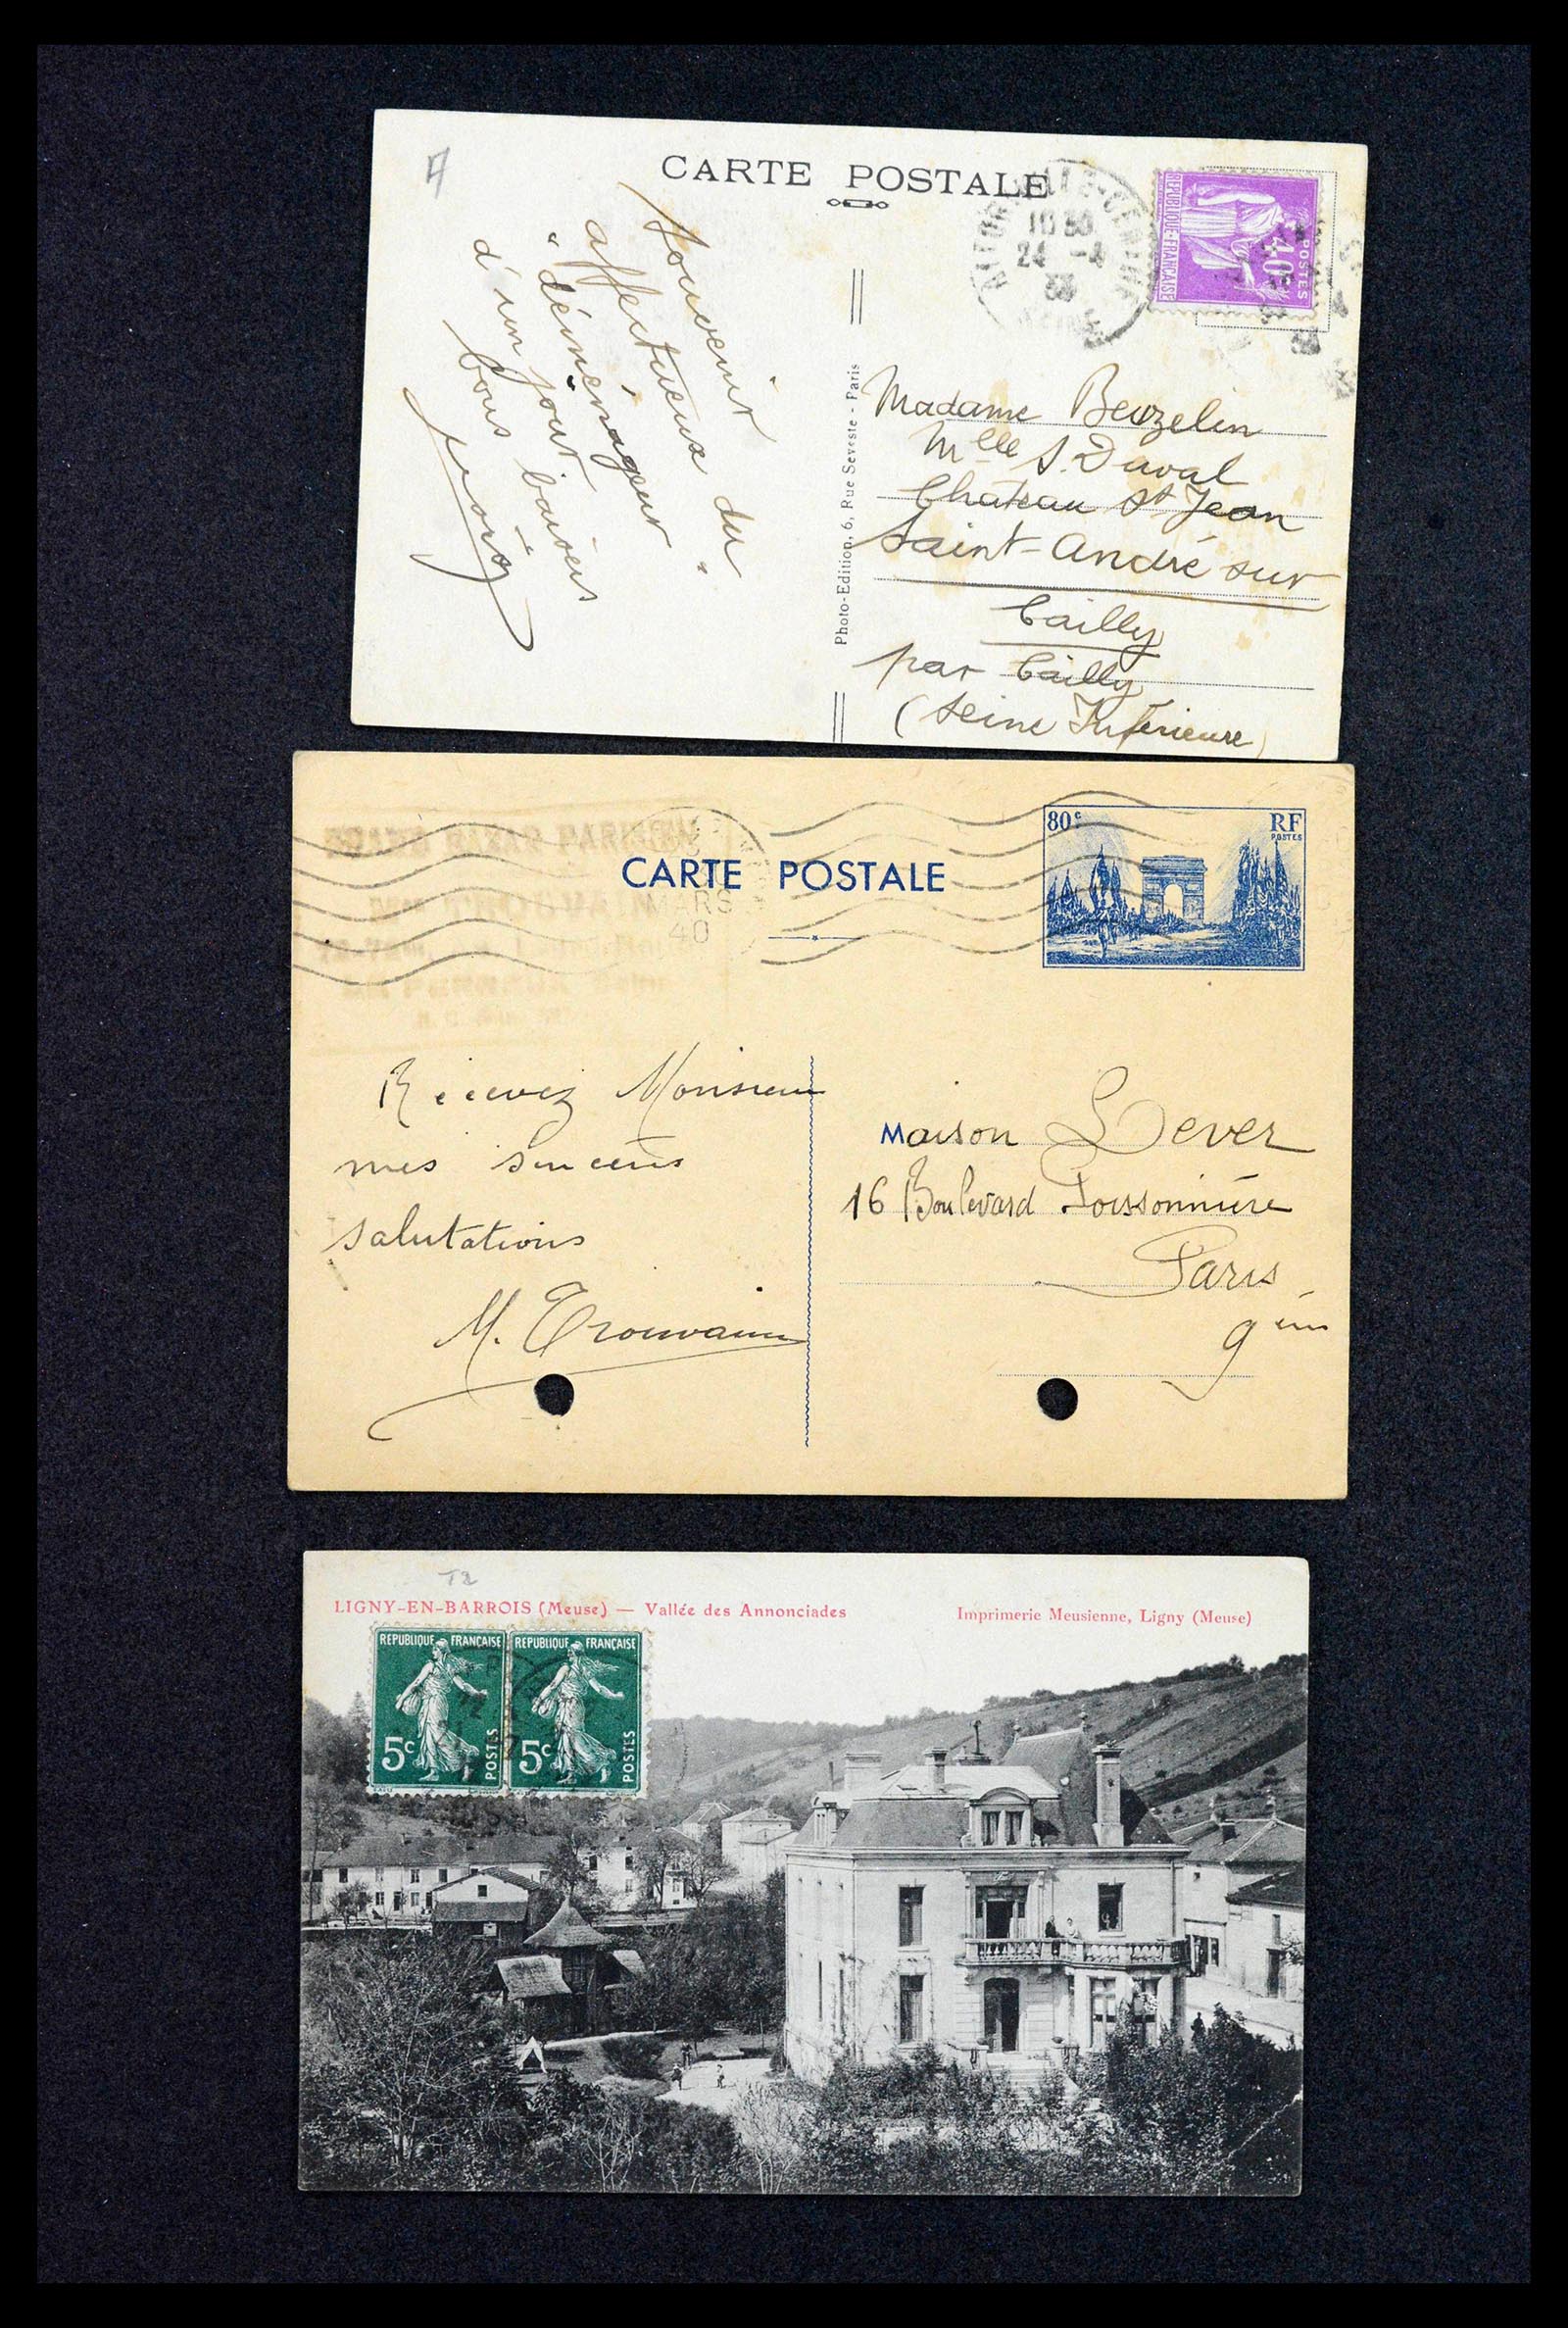 CARTE POSTALE
10 30
24 -4
REPUBLIQUE·FRANÇAISE
POSTES
40c
Souvenir
affectueux du
"déménageur"
d'un jour
bons baisers
Photo-Edition, 6, Rue Seveste - Paris
Madame Beuzelin
Mlle S. Duval
Chateau St Jean
Saint-André sur
Cailly
par Cailly
(Seine Inférieure)
GRAND BAZAR PARISIEN
MARS
40
CARTE POSTALE
80c
RF
POSTES
Recevez Monsieur
mes sincères
salutations
M. Trouvain
Maison Lever
16 Boulevard Poissonnière
Paris
9ème
LIGNY-EN-BARROIS (Meuse) — Vallée des Annonciades
Imprimerie Meusienne, Ligny (Meuse)
REPUBLIQUE FRANÇAISE
5c
POSTES
REPUBLIQUE FRANÇAISE
5c
POSTES